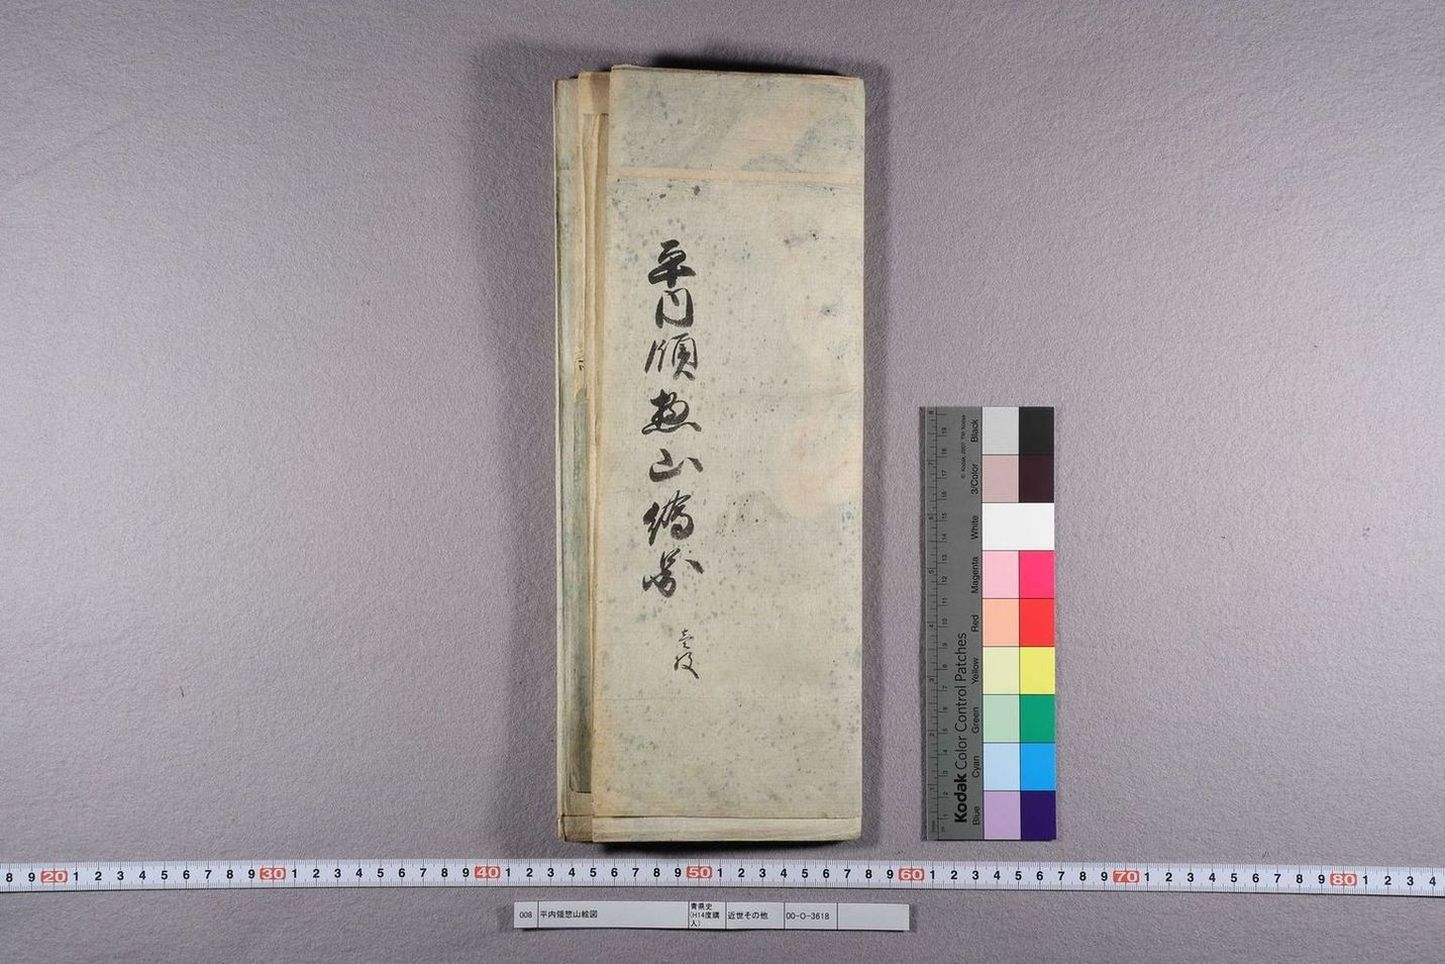 平内領惣山絵図
壱枚
Kodak Color Control Patches
© Kodak, 2007 TM: Kodak
Blue
Cyan
Green
Yellow
Red
Magenta
White
3/Color
Black
8 9 20 1 2 3 4 5 6 7 8 9 30 1 2 3 4 5 6 7 8 9 40 1 2 3 4 5 6 7 8 9 50 1 2 3 4 5 6 7 8 9 60 1 2 3 4 5 6 7 8 9 70 1 2 3 4 5 6 7 8 9 80 1 2 3 4
008 平内領惣山絵図 青県史(H14度購入) 近世その他 00-O-3618